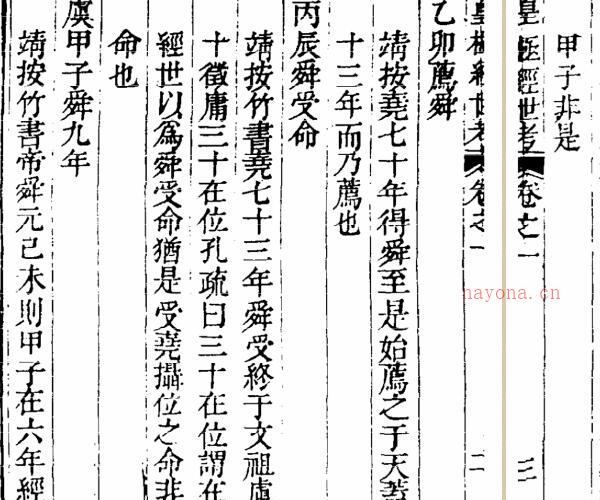 甲子非是
皇極經世考卷之一 三
皇極經世考卷之一 二
乙卯薦舜
靖按堯七十年得舜至是始薦之于天蓋
十三年而乃薦也
丙辰舜受命
靖按竹書堯七十三年舜受終于文祖虞
十徵庸三十在位孔疏曰三十在位謂在
經世以爲舜受命猶是受堯攝位之命非
命也
虞甲子舜九年
靖按竹書帝舜元己未則甲子在六年經
nayona.cn